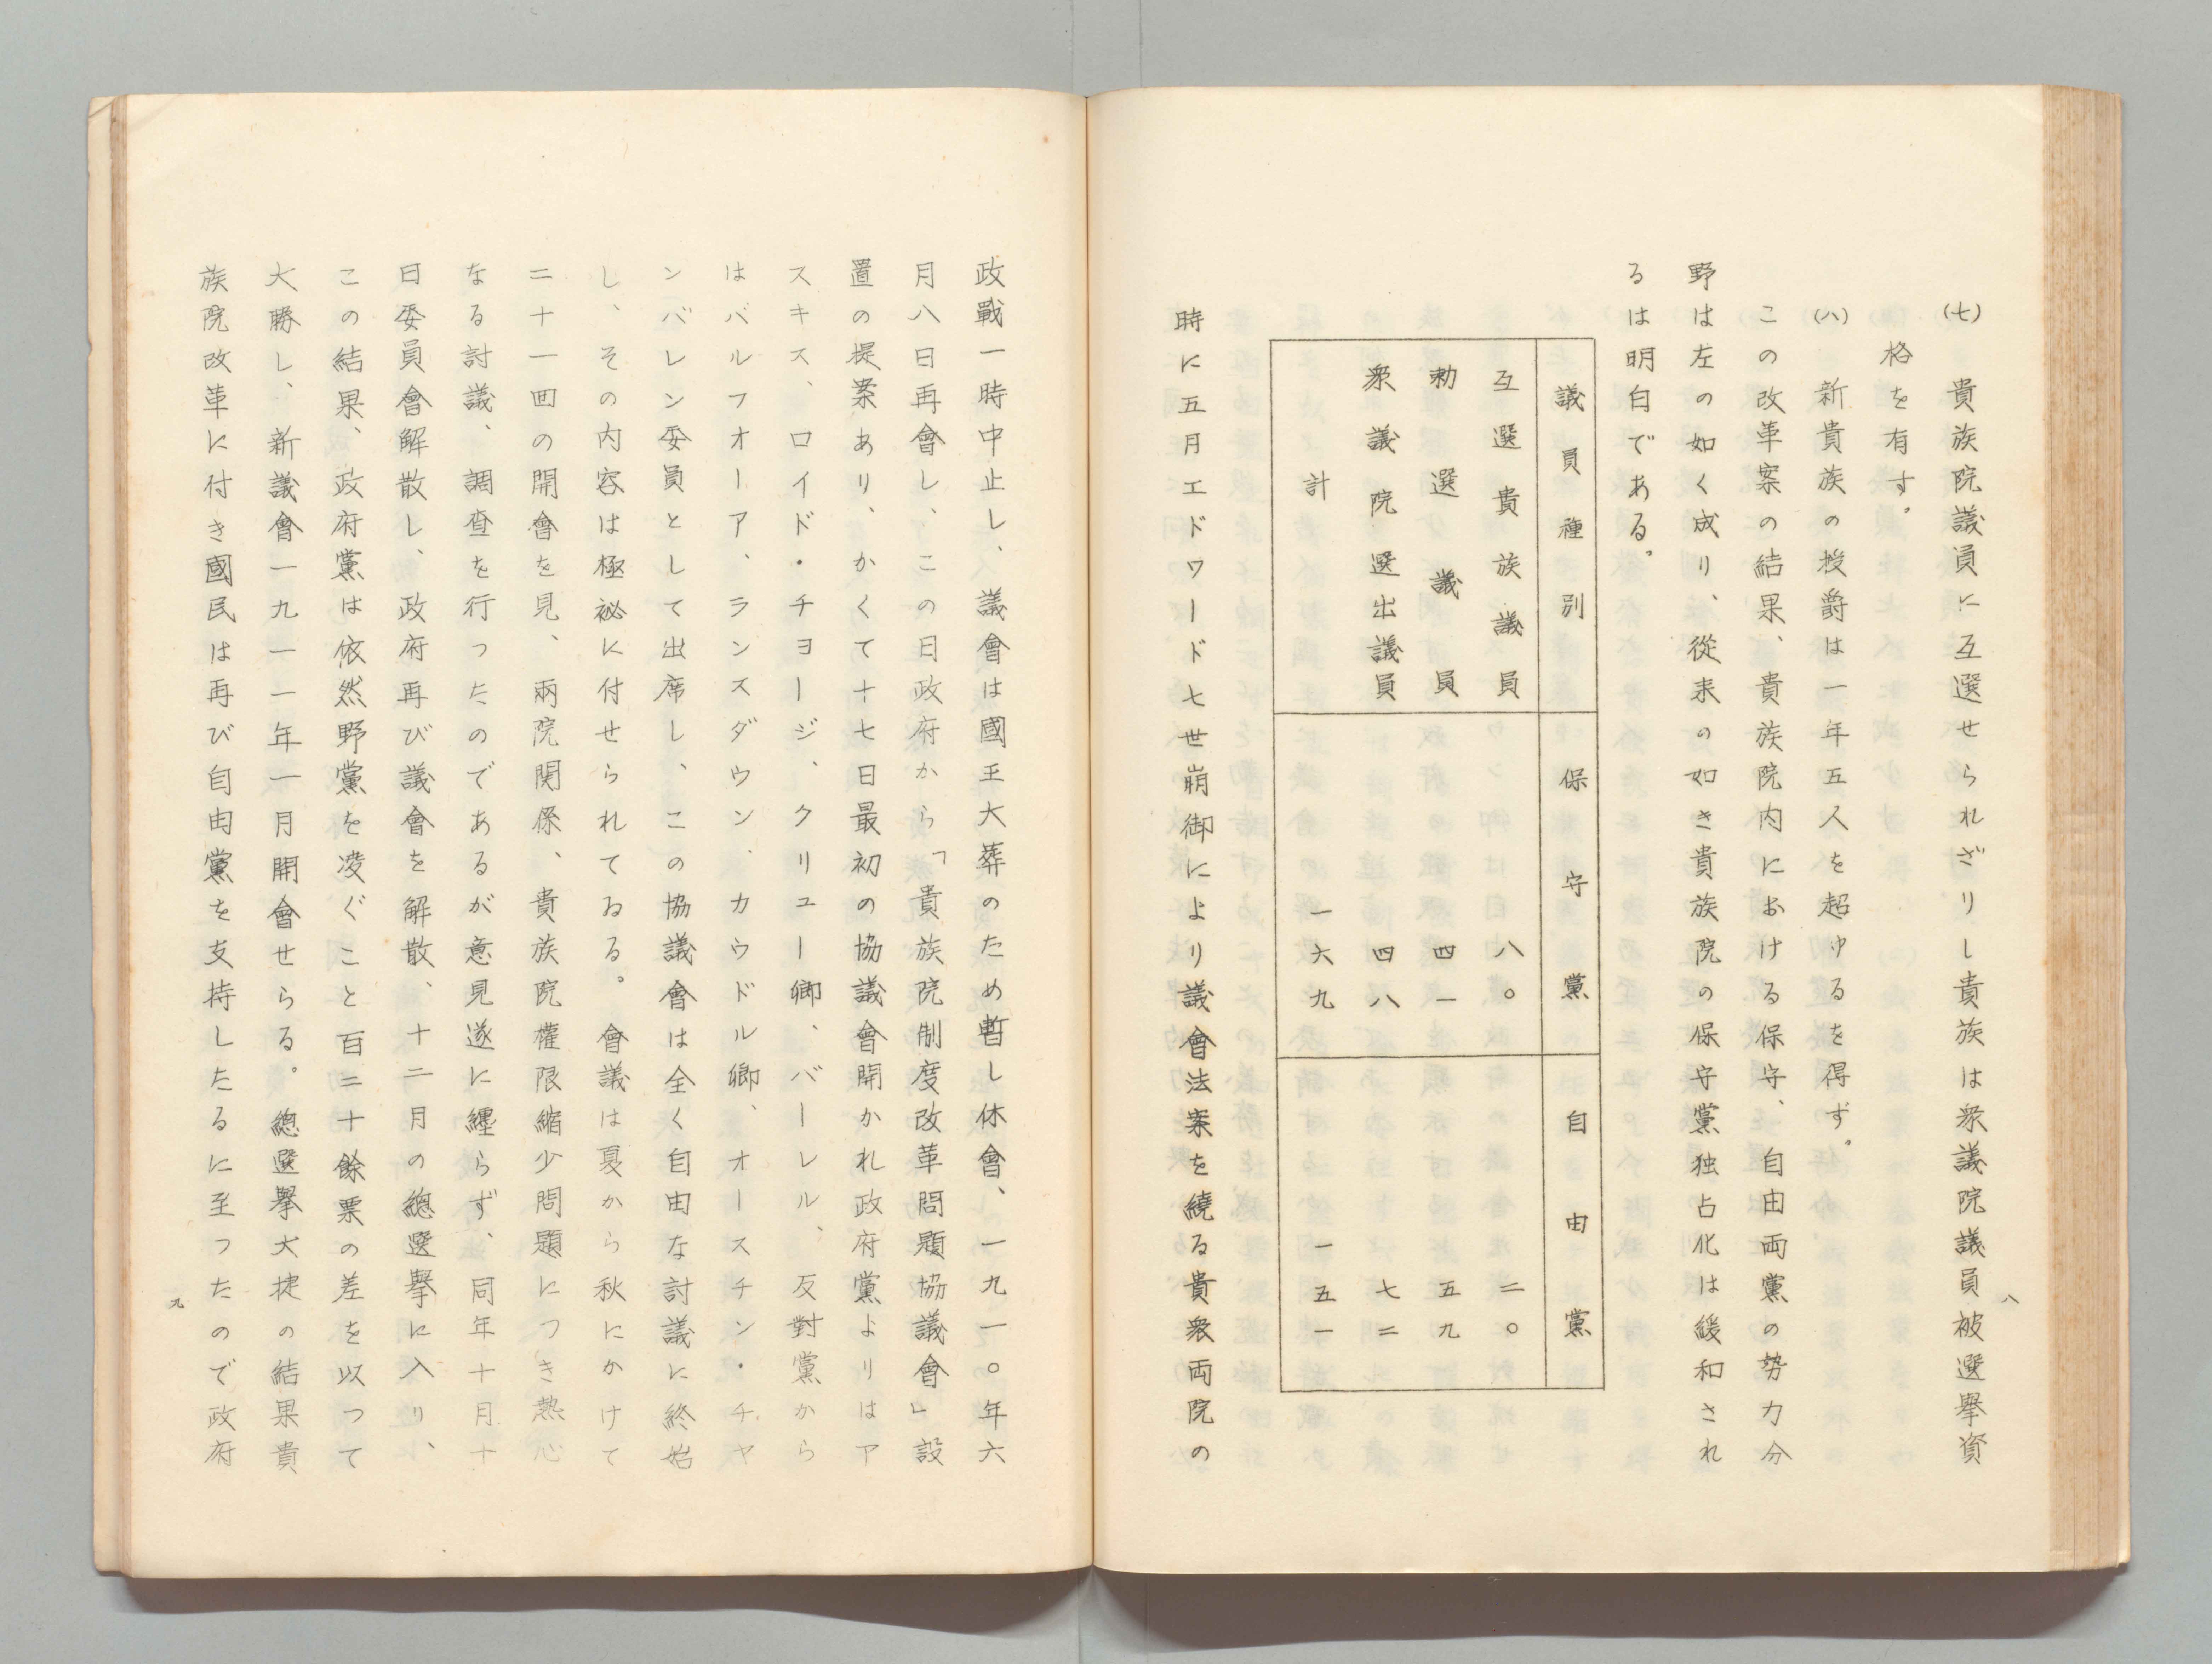 (七)　貴族院議員に互選せられざりし貴族は衆議院議員被選擧資
格を有す。
(八)　新貴族の授爵は一年五人を超ゆるを得ず。
この改革案の結果、貴族院内における保守、自由両黨の勢力分
野は左の如く成り、從来の如き貴族院の保守黨独占化は緩和され
るは明白である。
議員種別　保守黨　自由黨
互選貴族議員　八〇　二〇
勅選議員　四一　五九
衆議院選出議員　四八　七二
計　一六九　一五一
時に五月エドワード七世崩御により議會法案を繞る貴衆両院の
八
政戰一時中止し、議會は國王大葬のため暫し休會、一九一〇年六
月八日再會し、この日政府から「貴族院制度改革問題協議會」設
置の提案あり、かくて十七日最初の協議會開かれ政府黨よりはア
スキス、ロイド・チヨージ、クリュー卿、バーレル、反對黨から
はバルフオーア、ランスダウン、カウドル卿、オースチン・チヤ
ンバレン委員として出席し、この協議會は全く自由な討議に終始
し、その内容は極祕に付せられてゐる。會議は夏から秋にかけて
二十一回の開會を見、兩院関係、貴族院權限縮少問題につき熱心
なる討議、調査を行ったのであるが意見遂に纏らず、同年十月十
日委員會解散し、政府再び議會を解散、十二月の總選擧に入り、
この結果、政府黨は依然野黨を凌ぐこと百二十餘票の差を以って
大勝し、新議會一九一一年一月開會せらる。總選擧大捷の結果貴
族院改革に付き國民は再び自由黨を支持したるに至ったので政府
九